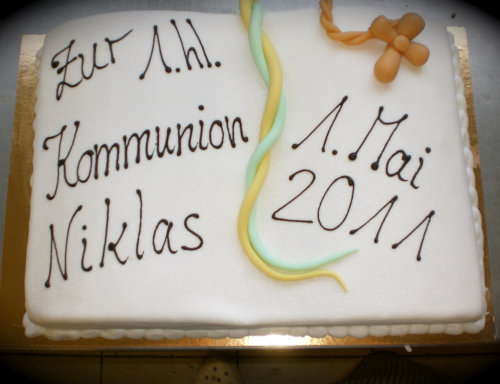 Zur 1. hl.
Kommunion
Niklas
1. Mai
2011